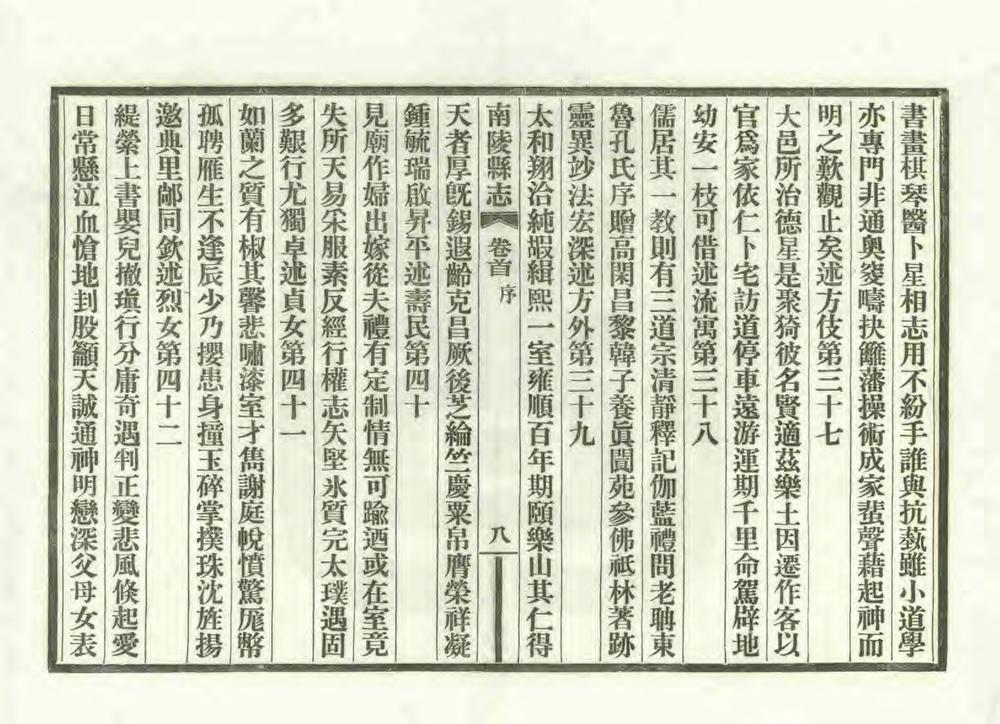 書畫棋琴醫卜星相志用不紛手誰與抗蓺雖小道學
亦專門非通奧窔疇抉籬藩操術成家蜚聲藉起神而
明之歎觀止矣述方伎第三十七
大邑所治德星是聚猗彼名賢適茲樂土因遷作客以
官爲家依仁卜宅訪道停車遠游運期千里命駕辟地
幼安一枝可借述流寓第三十八
儒居其一教則有三道宗清靜釋記伽藍禮問老聃東
魯孔氏序贈高閑昌黎韓子養眞閬苑參佛祇林著跡
靈異妙法宏深述方外第三十九
太和翔洽純嘏緝熙一室雍順百年期頤樂山其仁得
南陵縣志
卷首
序
八
天者厚旣錫遐齡克昌厥後芝綸竺慶粟帛膺榮祥凝
鍾毓瑞啟昇平述壽民第四十
見廟作婦出嫁從夫禮有定制情無可踰迺或在室竟
失所天易采服素反經行權志矢堅氷質完太璞遇固
多艱行尤獨卓述貞女第四十一
如蘭之質有椒其馨悲嘯漆室才雋謝庭帨憤驚厖幣
孤聘雁生不逢辰少乃攖患身撞玉碎掌撲珠沈旌揚
邀典里鄰同欽述烈女第四十二
緹縈上書嬰兒撤瑱行分庸奇遇判正變悲風倏起愛
日常懸泣血愴地刲股籲天誠通神明戀深父母女表